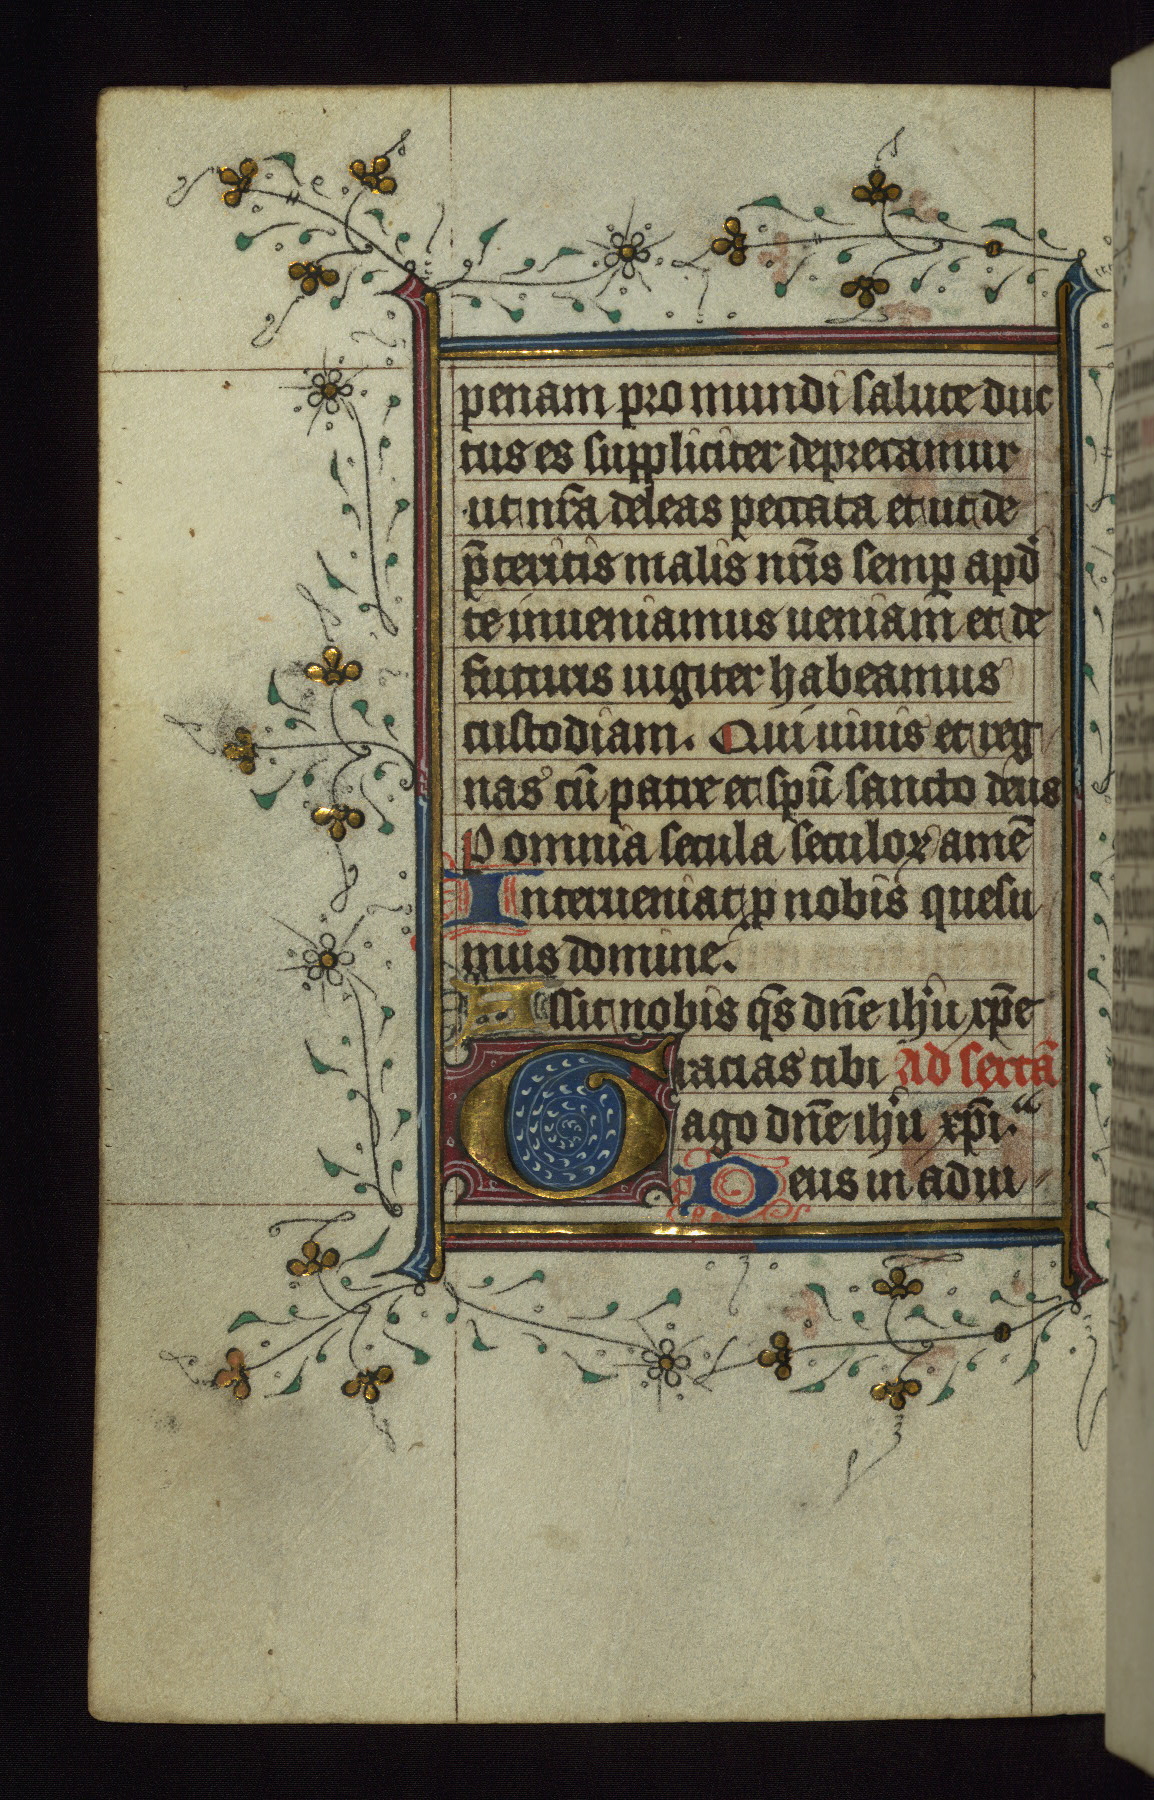 penam pro mundi salute duc
tus es suppliciter deprecamur
ut nr̃a deleas peccata et ut de
p̃teritis malis nr̃is semꝑ apđ
te inueniamus ueniam et de
futuris iugiter habeamus
custodiam. Qui uiuis et reg
nas cũ patre et spũ sancto deus
P omnia secula seculoꝝ amẽ
Interueniat ꝓ nobis quesu
mus domine.
Assit nobis q̃s dñe ihũ xp̃e
Gracias tibi Ad sextã
ago dñe ihũ xp̃i.
Deus in adiu